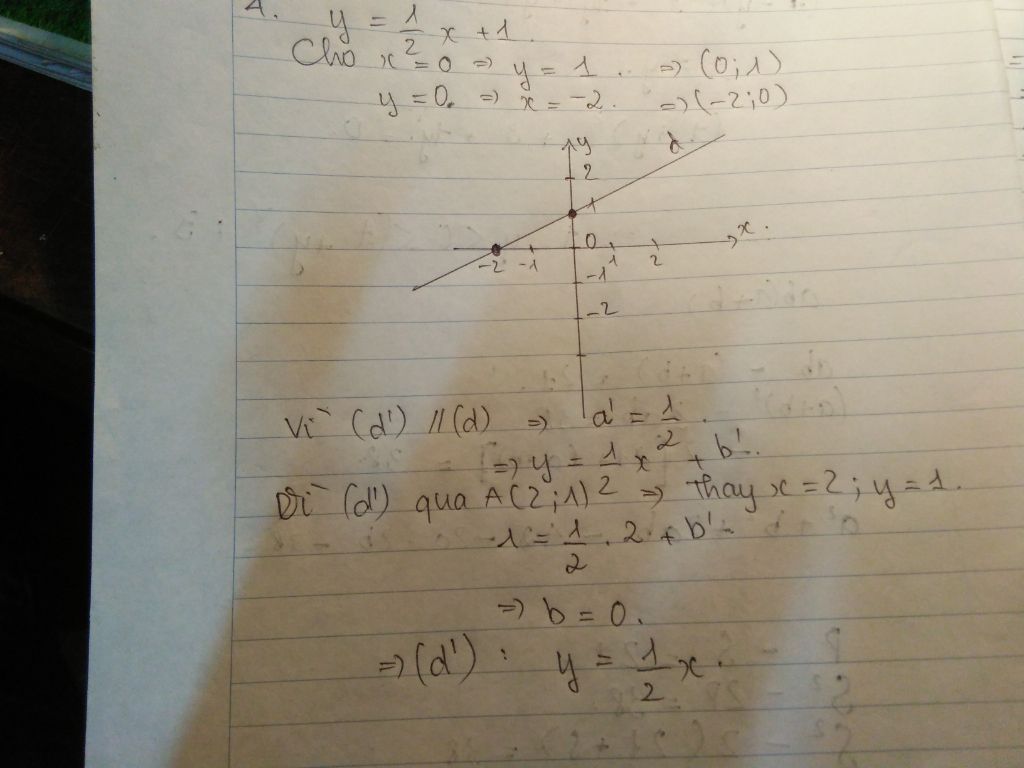 1. y = 1/2 x + 1.
Cho x = 0 => y = 1 . => (0;1)
y = 0. => x = -2. => (-2;0)
y
d
2
1
x.
0
-2 -1 1 2
-1
-2
Vì (d') // (d) => a' = 1/2 .
=> y = 1/2 x + b'.
Vì (d') qua A(2;1) => Thay x = 2 ; y = 1.
1 = 1/2 . 2 + b'
=> b = 0.
=> (d') : y = 1/2 x.